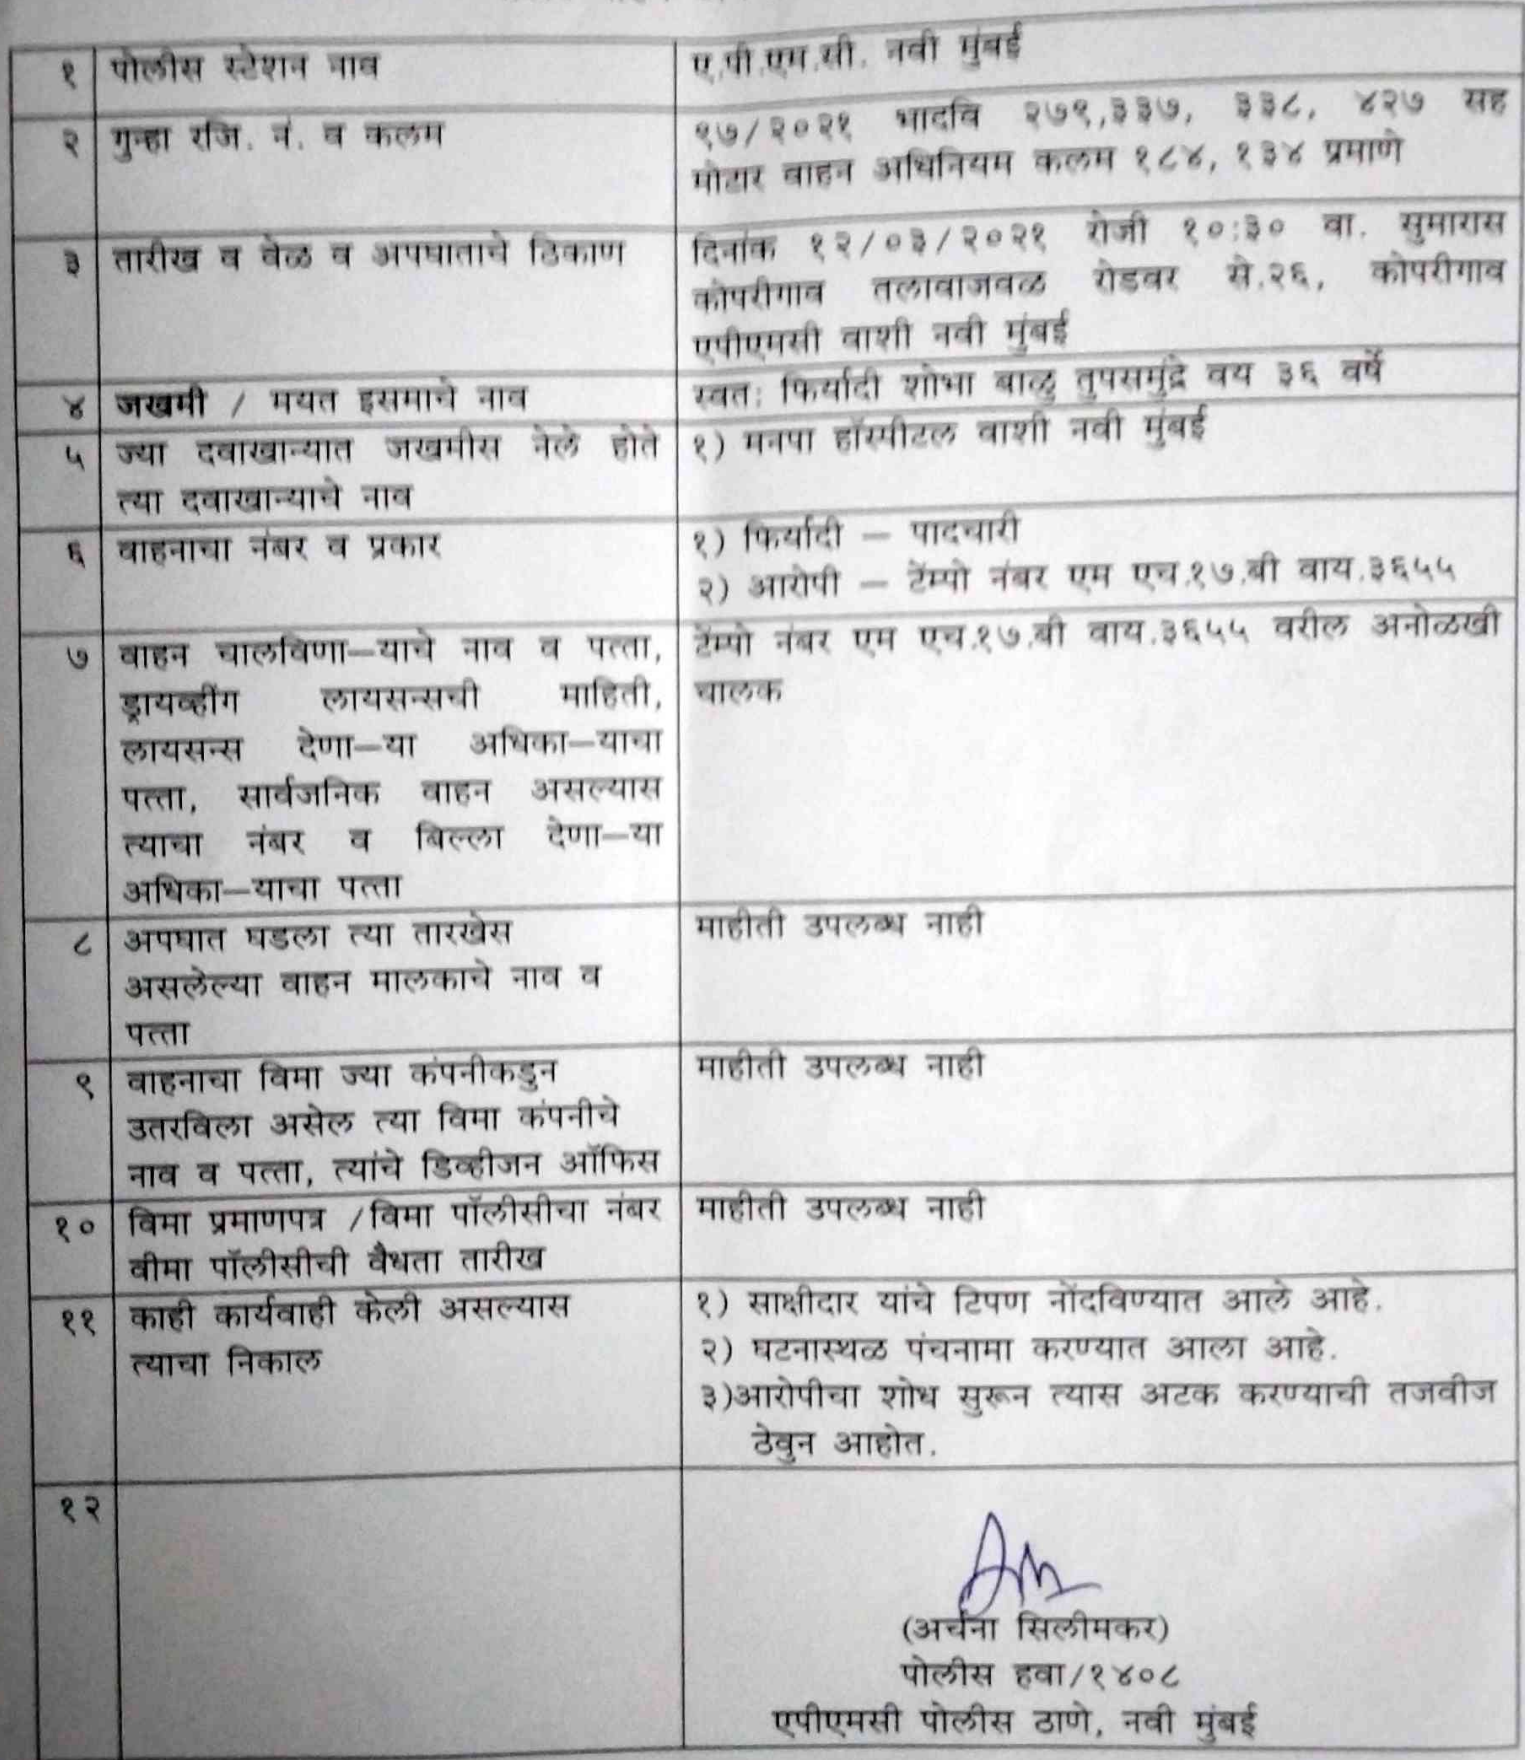 १ पोलीस स्टेशन नाव
ए.पी.एम.सी. नवी मुंबई
२ गुन्हा रजि. नं. व कलम
९७/२०२१ भादवि २७९,३३७, ३३८, ४२७ सह
मोटार वाहन अधिनियम कलम १८४, १३४ प्रमाणे
३ तारीख व वेळ व अपघाताचे ठिकाण
दिनांक १२/०३/२०२१ रोजी १०:३० वा. सुमारास
कोपरीगाव तलावाजवळ रोडवर से.२६, कोपरीगाव
एपीएमसी वाशी नवी मुंबई
४ जखमी / मयत इसमाचे नाव
स्वतः फिर्यादी शोभा बाळु तुपसमुंद्रे वय ३६ वर्षे
५ ज्या दवाखान्यात जखमीस नेले होते
त्या दवाखान्याचे नाव
१) मनपा हॉस्पीटल वाशी नवी मुंबई
६ वाहनाचा नंबर व प्रकार
१) फिर्यादी — पादचारी
२) आरोपी — टेंम्पो नंबर एम एच.१७.बी वाय.३६५५
७ वाहन चालविणा—याचे नाव व पत्ता,
ड्रायव्हींग लायसन्सची माहिती,
लायसन्स देणा—या अधिका—याचा
पत्ता, सार्वजनिक वाहन असल्यास
त्याचा नंबर व बिल्ला देणा—या
अधिका—याचा पत्ता
टेंम्पो नंबर एम एच.१७.बी वाय.३६५५ वरील अनोळखी
चालक
८ अपघात घडला त्या तारखेस
असलेल्या वाहन मालकाचे नाव व
पत्ता
माहीती उपलब्ध नाही
९ वाहनाचा विमा ज्या कंपनीकडुन
उतरविला असेल त्या विमा कंपनीचे
नाव व पत्ता, त्यांचे डिव्हीजन ऑफिस
माहीती उपलब्ध नाही
१० विमा प्रमाणपत्र /विमा पॉलीसीचा नंबर
वीमा पॉलीसीची वैधता तारीख
माहीती उपलब्ध नाही
११ काही कार्यवाही केली असल्यास
त्याचा निकाल
१) साक्षीदार यांचे टिपण नोंदविण्यात आले आहे.
२) घटनास्थळ पंचनामा करण्यात आला आहे.
३)आरोपीचा शोध सुरून त्यास अटक करण्याची तजवीज
ठेवुन आहोत.
१२
(अर्चना सिलीमकर)
पोलीस हवा/१४०८
एपीएमसी पोलीस ठाणे, नवी मुंबई